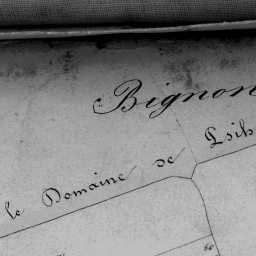 Bignon
le Domaine de